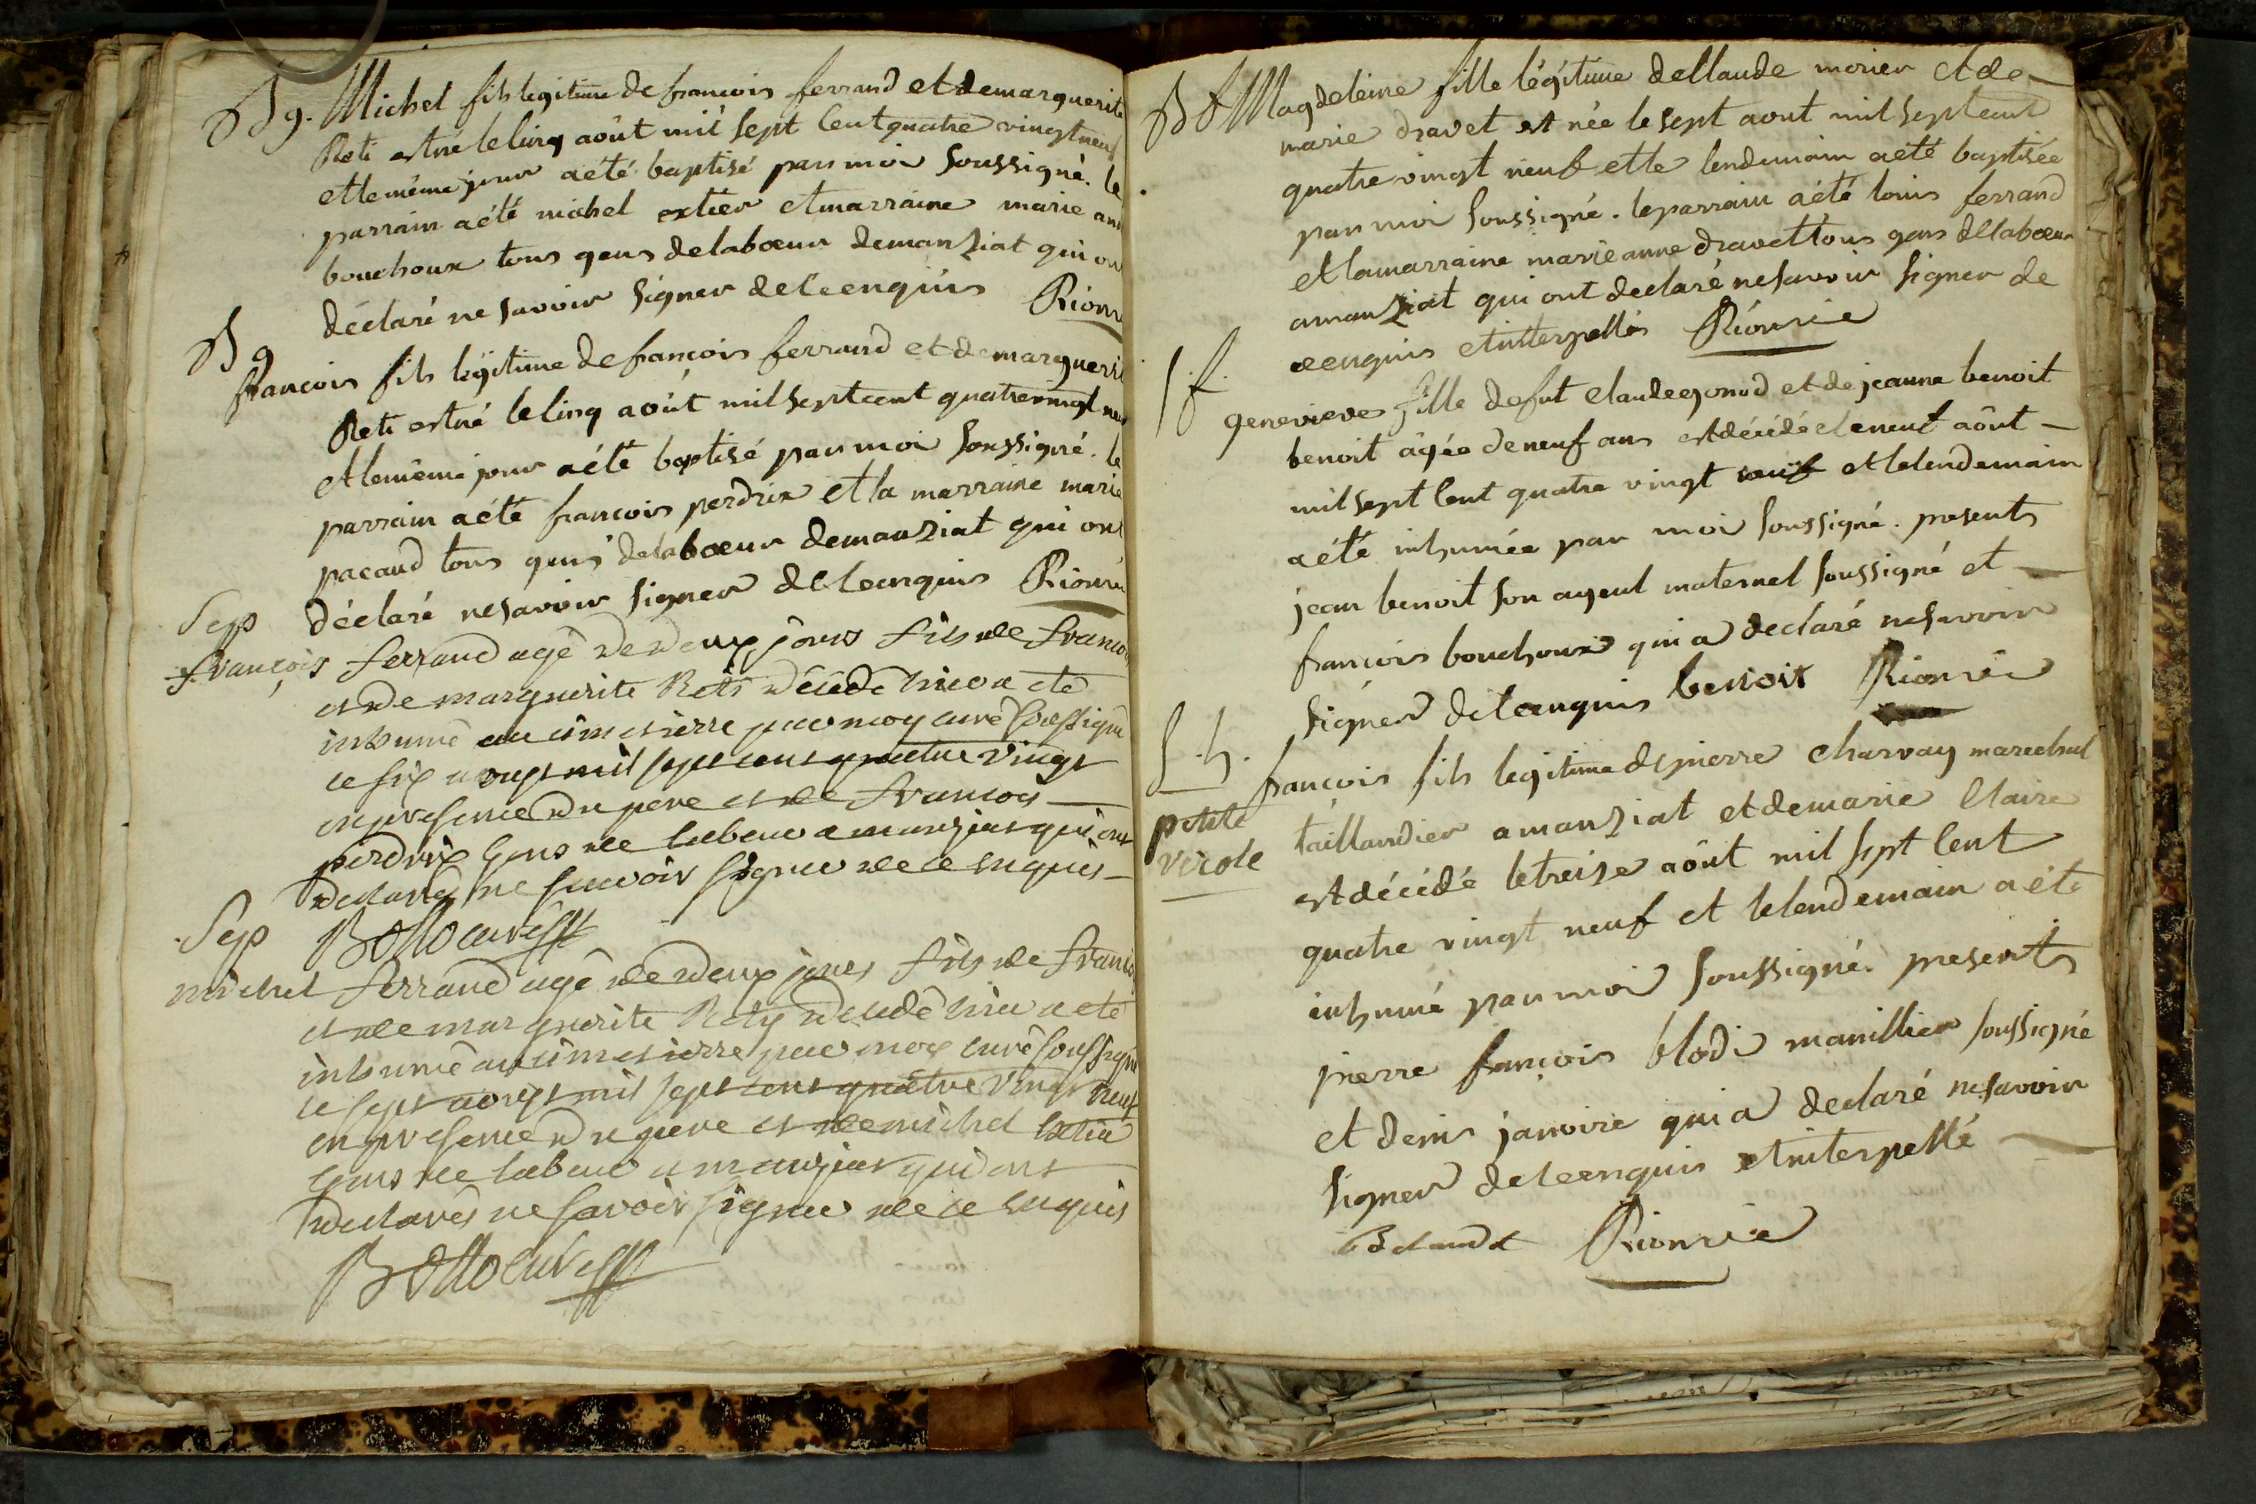 B g. Michel fils legitime de francois ferrand et de marguerite
Reti est né le cinq août mil sept cent quatre vingt neuf
et le même jour a été baptisé par moi soussigné. le
parrain a été michel extier et marraine marie ann
bouchoux tous gens de laboeur de manziat qui on
déclaré ne savoir signer de ce enquis Rionn
B g
françois fils légitime de françois ferrand et de marguerit
Reti est né le cinq août mil sept cent quatre vingt neu
et le même jour a été baptisé par moi soussigné. le
parrain a été françois perdrix et la marraine marie
pacaud tous gens de laboeur de manziat qui ont
déclaré ne savoir signer de ce enquis Rionn
Sep
françois ferrand agé de deux jours fils de franco
et de marguerite Reti décédé hier a été
inhumé au cimetierre par moy curé soussigné
le six aoust mil sept cent quatre vingt
en presence du pere et de francois
perdrix gens de labeur a manziat qui ont
declarés ne savoir signer de ce enquis
Sep
michel ferrand agé de deux jours fils de franco
et de marguerite Rety décédé hier a été
inhumé au cimetierre par moy curé soussigné
le sept aoust mil sept cent quatre vingt neuf
en presence du pere et de michel extier
gens de labeur a manziat qui ont
declarés ne savoir signer de ce enquis
B f Magdeleine fille légitime de Claude morier et de
marie dravet est née le sept aout mil sept cent
quatre vingt neuf et le lendemain a été baptisée
par moi soussigné. le parrain a été louis ferrand
et la marraine marie anne dravet tous gens de laboeur
a manziat qui ont declaré ne savoir signer de
ce enquis et interpellés Rionvie
S. f.
genevieve fille de fut claude gonod et de jeanne benoit
benoit âgée de neuf ans est décédé le neuf aôut
mil sept cent quatre vingt neuf et le lendemain
a été inhumée par moi soussigné. presents
jean benoit son ayeul maternel soussigné et
françois bouchoux qui a declaré ne savoir
signer de ce enquis benoit Rionvie
S. h.
françois fils legitime de pierre charvay marechal
petite
taillandier a manziat et de marie Claire
vérole
est décédé le treize aôut mil sept cent
quatre vingt neuf et le lendemain a été
inhumé par moi soussigné. presents
pierre françois blodi manillier soussigné
et denis janvoire qui a declaré ne savoir
signer de ce enquis et interpellé
Rionvie